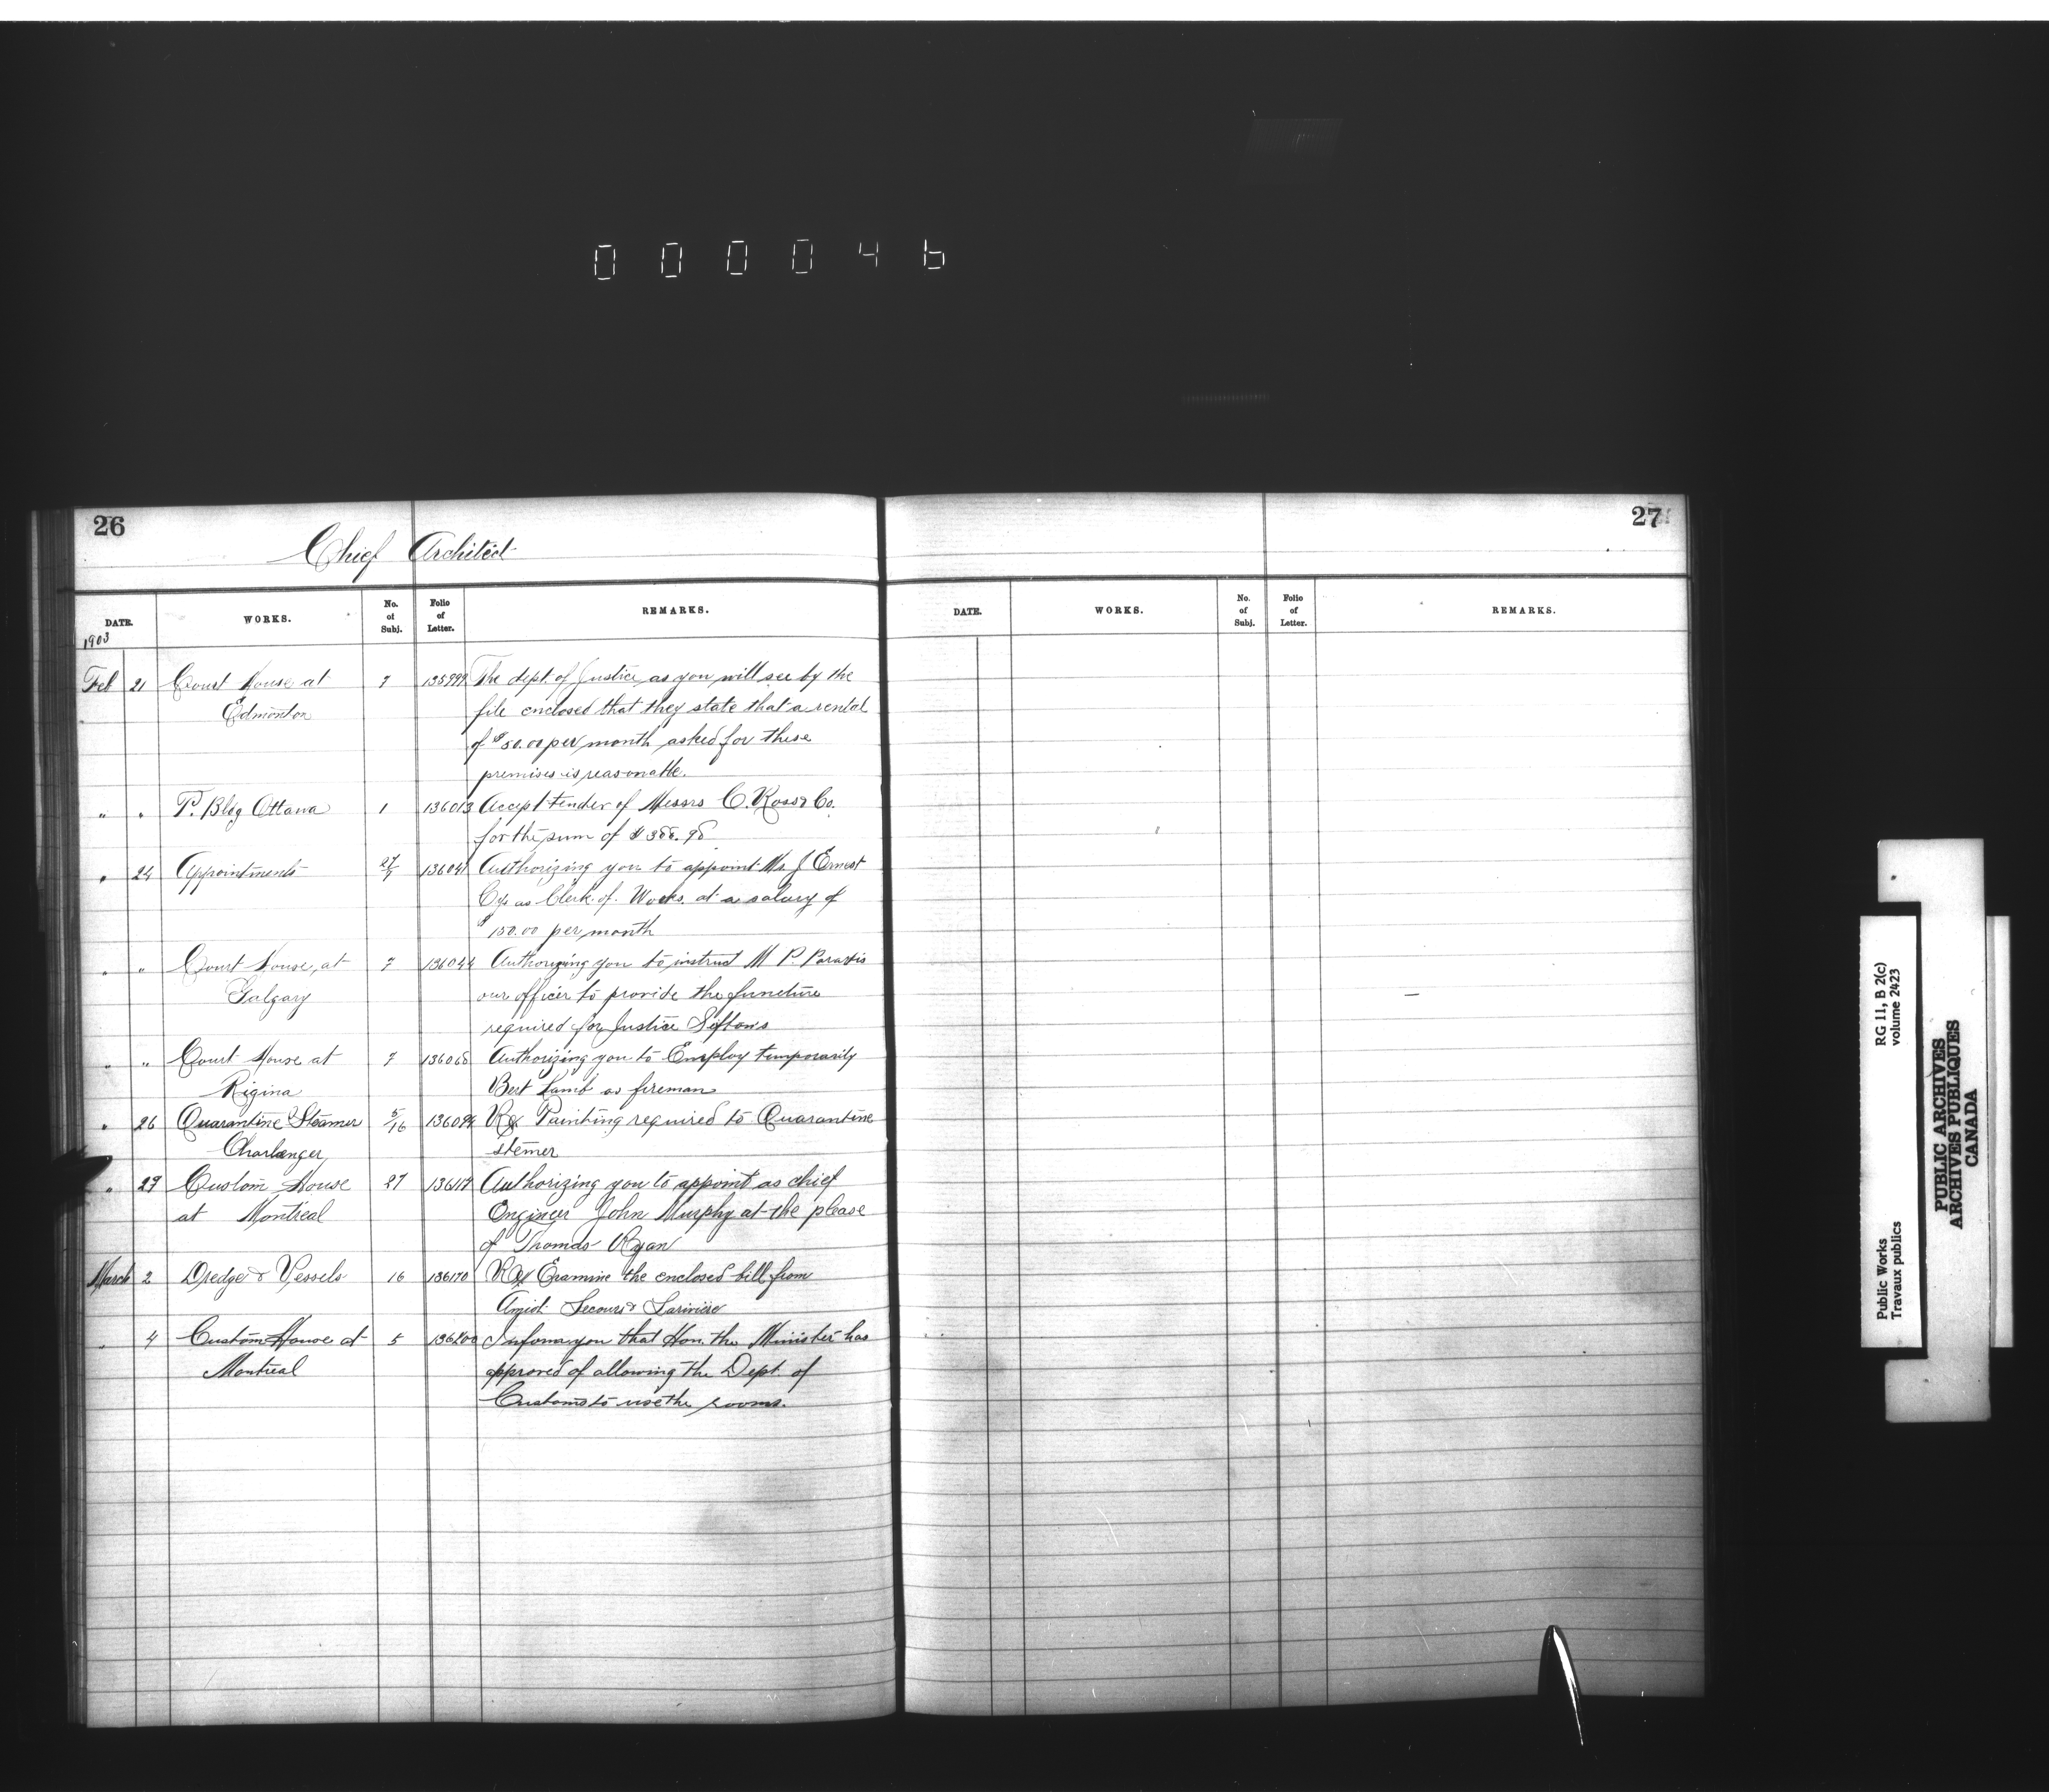 000046
26
Chief Architect
DATE.
WORKS.
No. of Subj.
Folio of Letter.
REMARKS.
1903
Feb 21 Court House at 7 135999 The dept. of Justice as you will see by the
Edmonton file enclosed that they state that a rental
of $50.00 per month asked for these
premises is reasonable.
" " P. Bldg Ottawa 1 136013 Accept tender of Messrs C. Ross & Co.
for the sum of $388.98
" 24 Appointments 136041 Authorizing you to appoint Mr J Ernest
Cyr as Clerk of Works at a salary of
$150.00 per month
" " Court House, at 7 136044 Authorizing you to instruct M P.
Calgary our officer to provide the furneture
required for Justice Sifton's
" " Court House at 7 136068 Authorizing you to Employ temporarily
Rigina Bert Lamb as fireman
" 26 Quarantine Steamer 5/16 Painting required to Quarantine
Charlenger stemer
" 27 Custom House 27 Authorizing you to appoint as chief
at Montreal Engineer John Murphy at the please
of Thomas Ryan
March 2 Dredge & Vessels 16 136170 Examine the enclosed bill from
Amiot Lecours & Lariviere
" 4 Custom House at 5 136200 Inform you that Hon. the Minister has
Montreal approved of allowing the Dept. of
Customs to use the rooms.
27
DATE.
WORKS.
No. of Subj.
Folio of Letter.
REMARKS.
Public Works
Travaux publics
RG 11, B 2(c)
volume 2423
PUBLIC ARCHIVES
ARCHIVES PUBLIQUES
CANADA